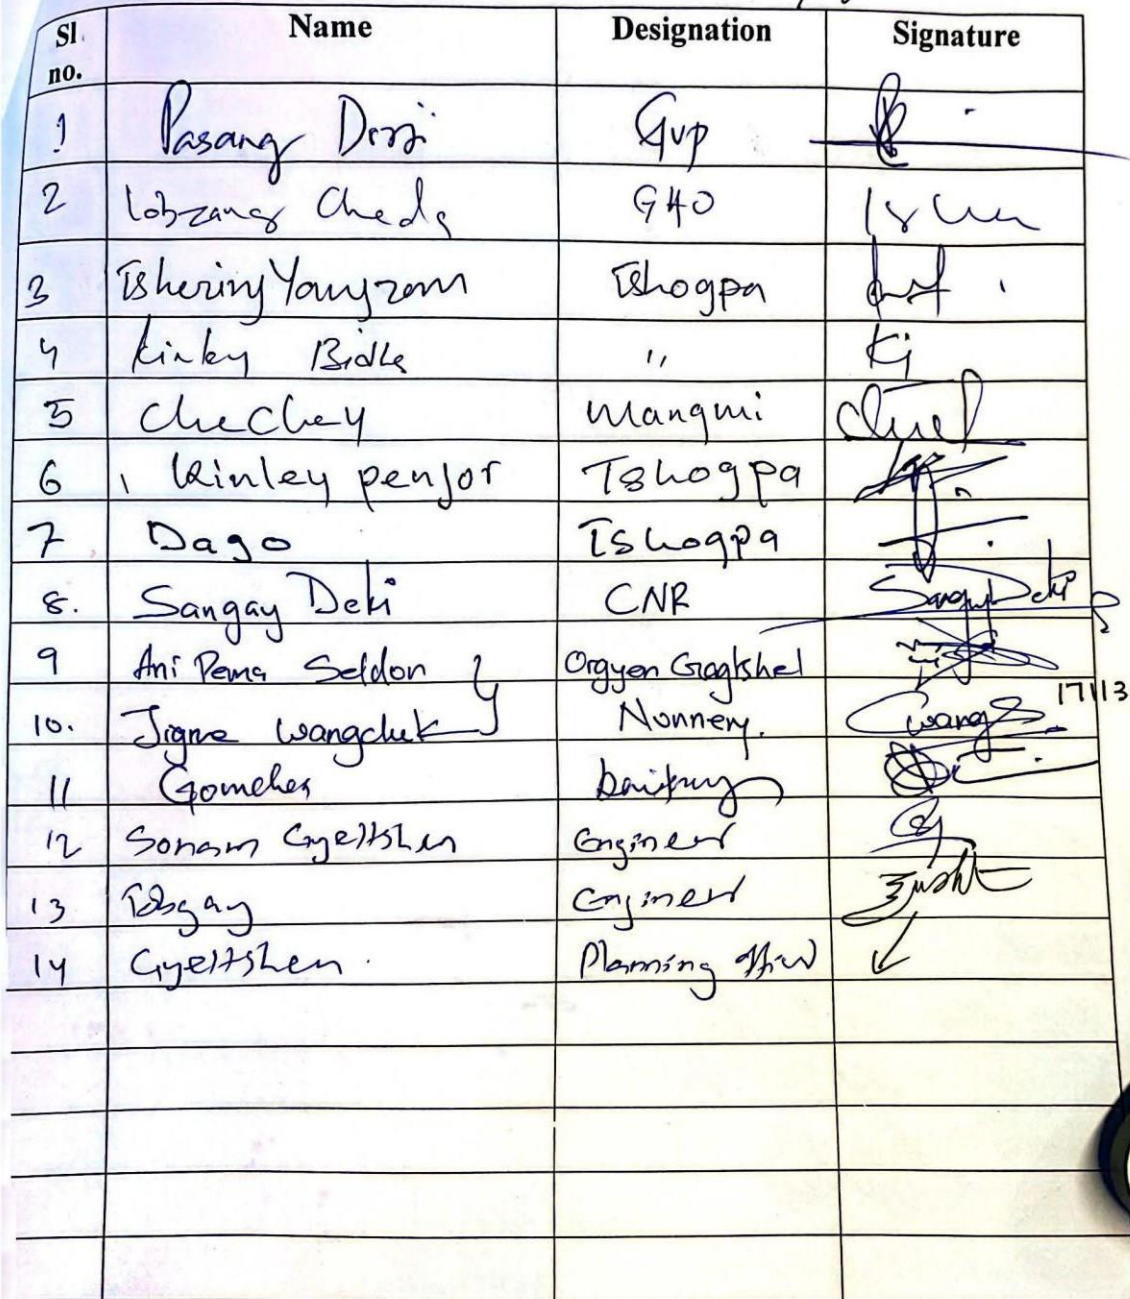 Sl. no. Name Designation Signature
1 Pasang Dorji Gup
2 Lobzang Cheda GAO
3 Tshering Yangzom Tshogpa
4 Kinley Bidha " Kj
5 CheChey Mangmi
6 Kinley penjor Tshogpa
7 Dago Tshogpa
8. Sangay Deki CNR Sangay Deki
9 Ani Pema Seldon Orgyen Gagtshel
10. Jigme Wangchuk Nunnery.
17113
11
12 Sonam Gyeltshen Engineer
13 Tobgay Engineer
14 Gyeltshen. Planning Officer